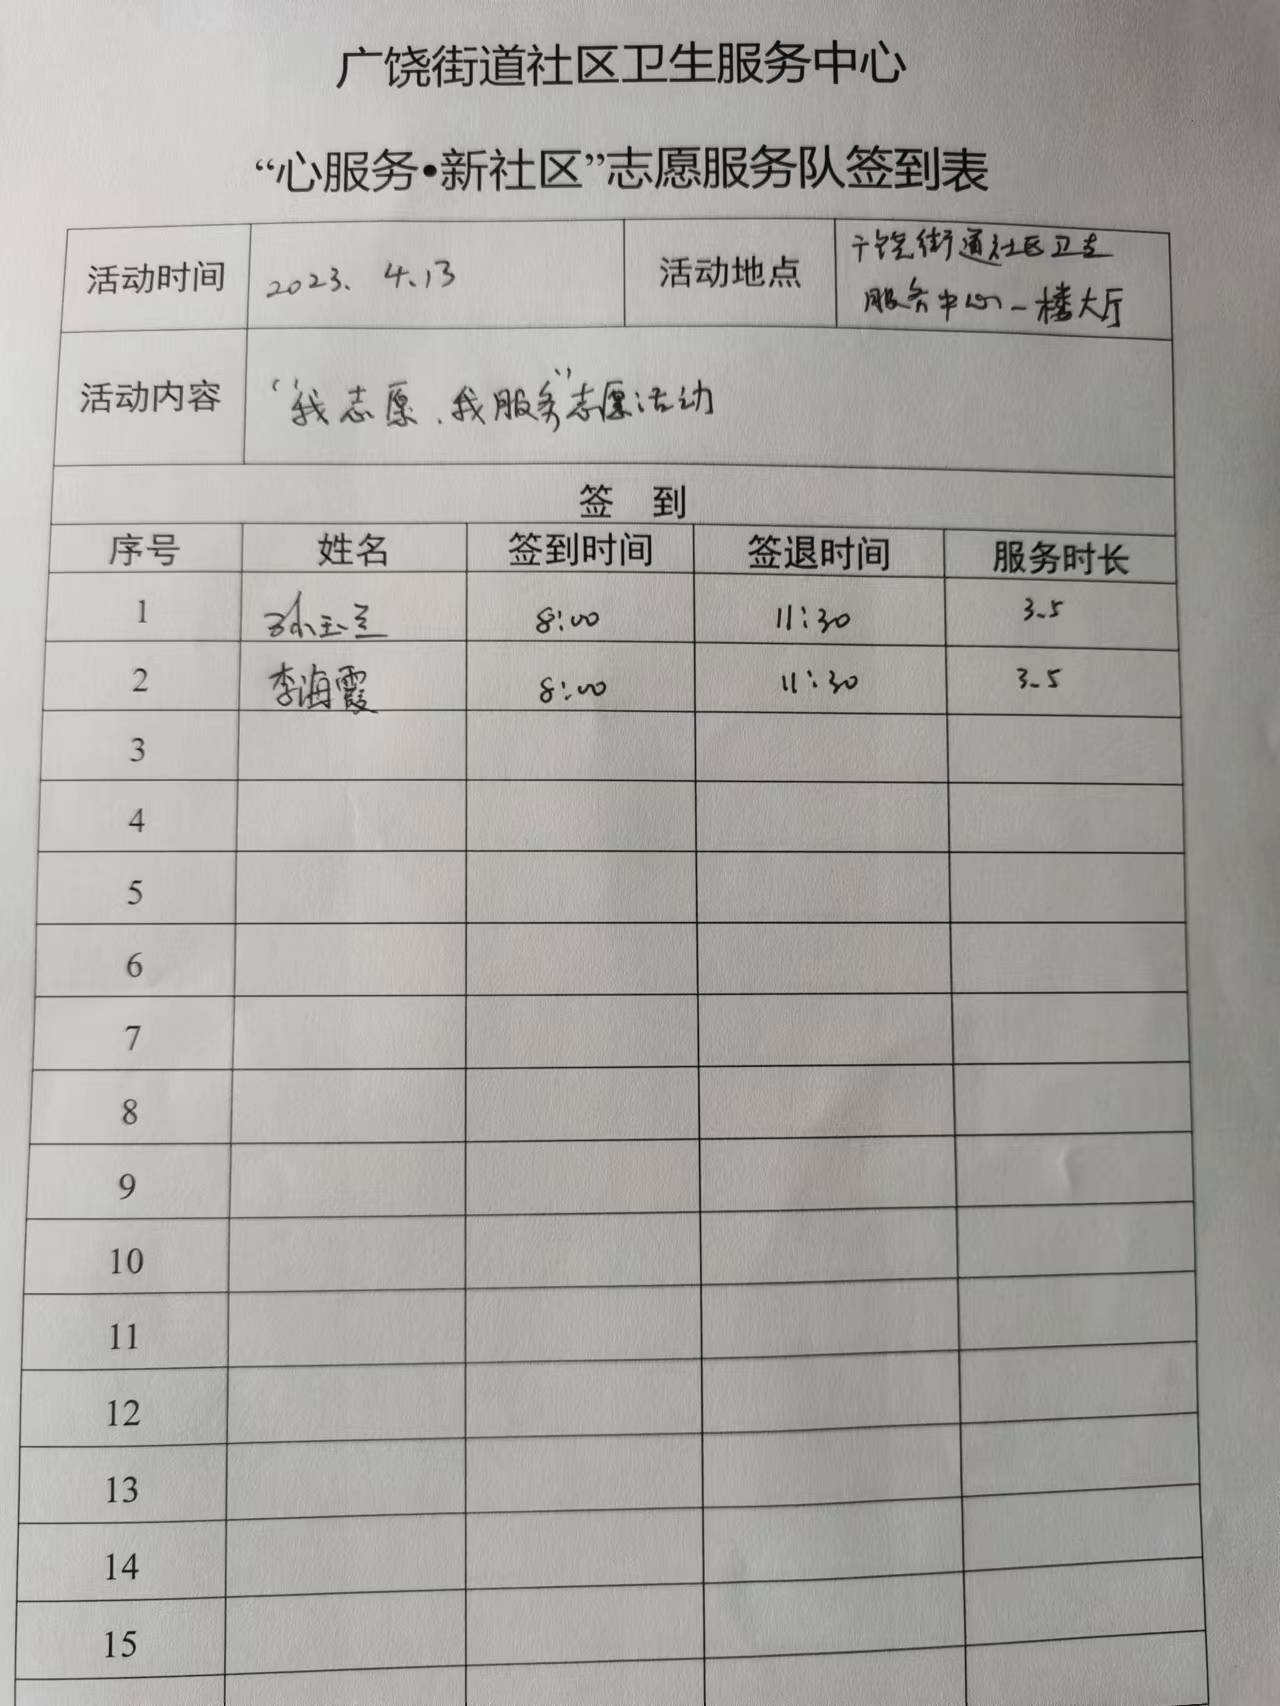 广饶街道社区卫生服务中心
“心服务•新社区”志愿服务队签到表
活动时间 2023. 4.13 活动地点 广饶街道社区卫生
服务中心一楼大厅
活动内容 “我志愿、我服务”志愿活动
签 到
序号 姓名 签到时间 签退时间 服务时长
1 孙玉兰 8:00 11:30 3.5
2 李海霞 8:00 11:30 3.5
3
4
5
6
7
8
9
10
11
12
13
14
15